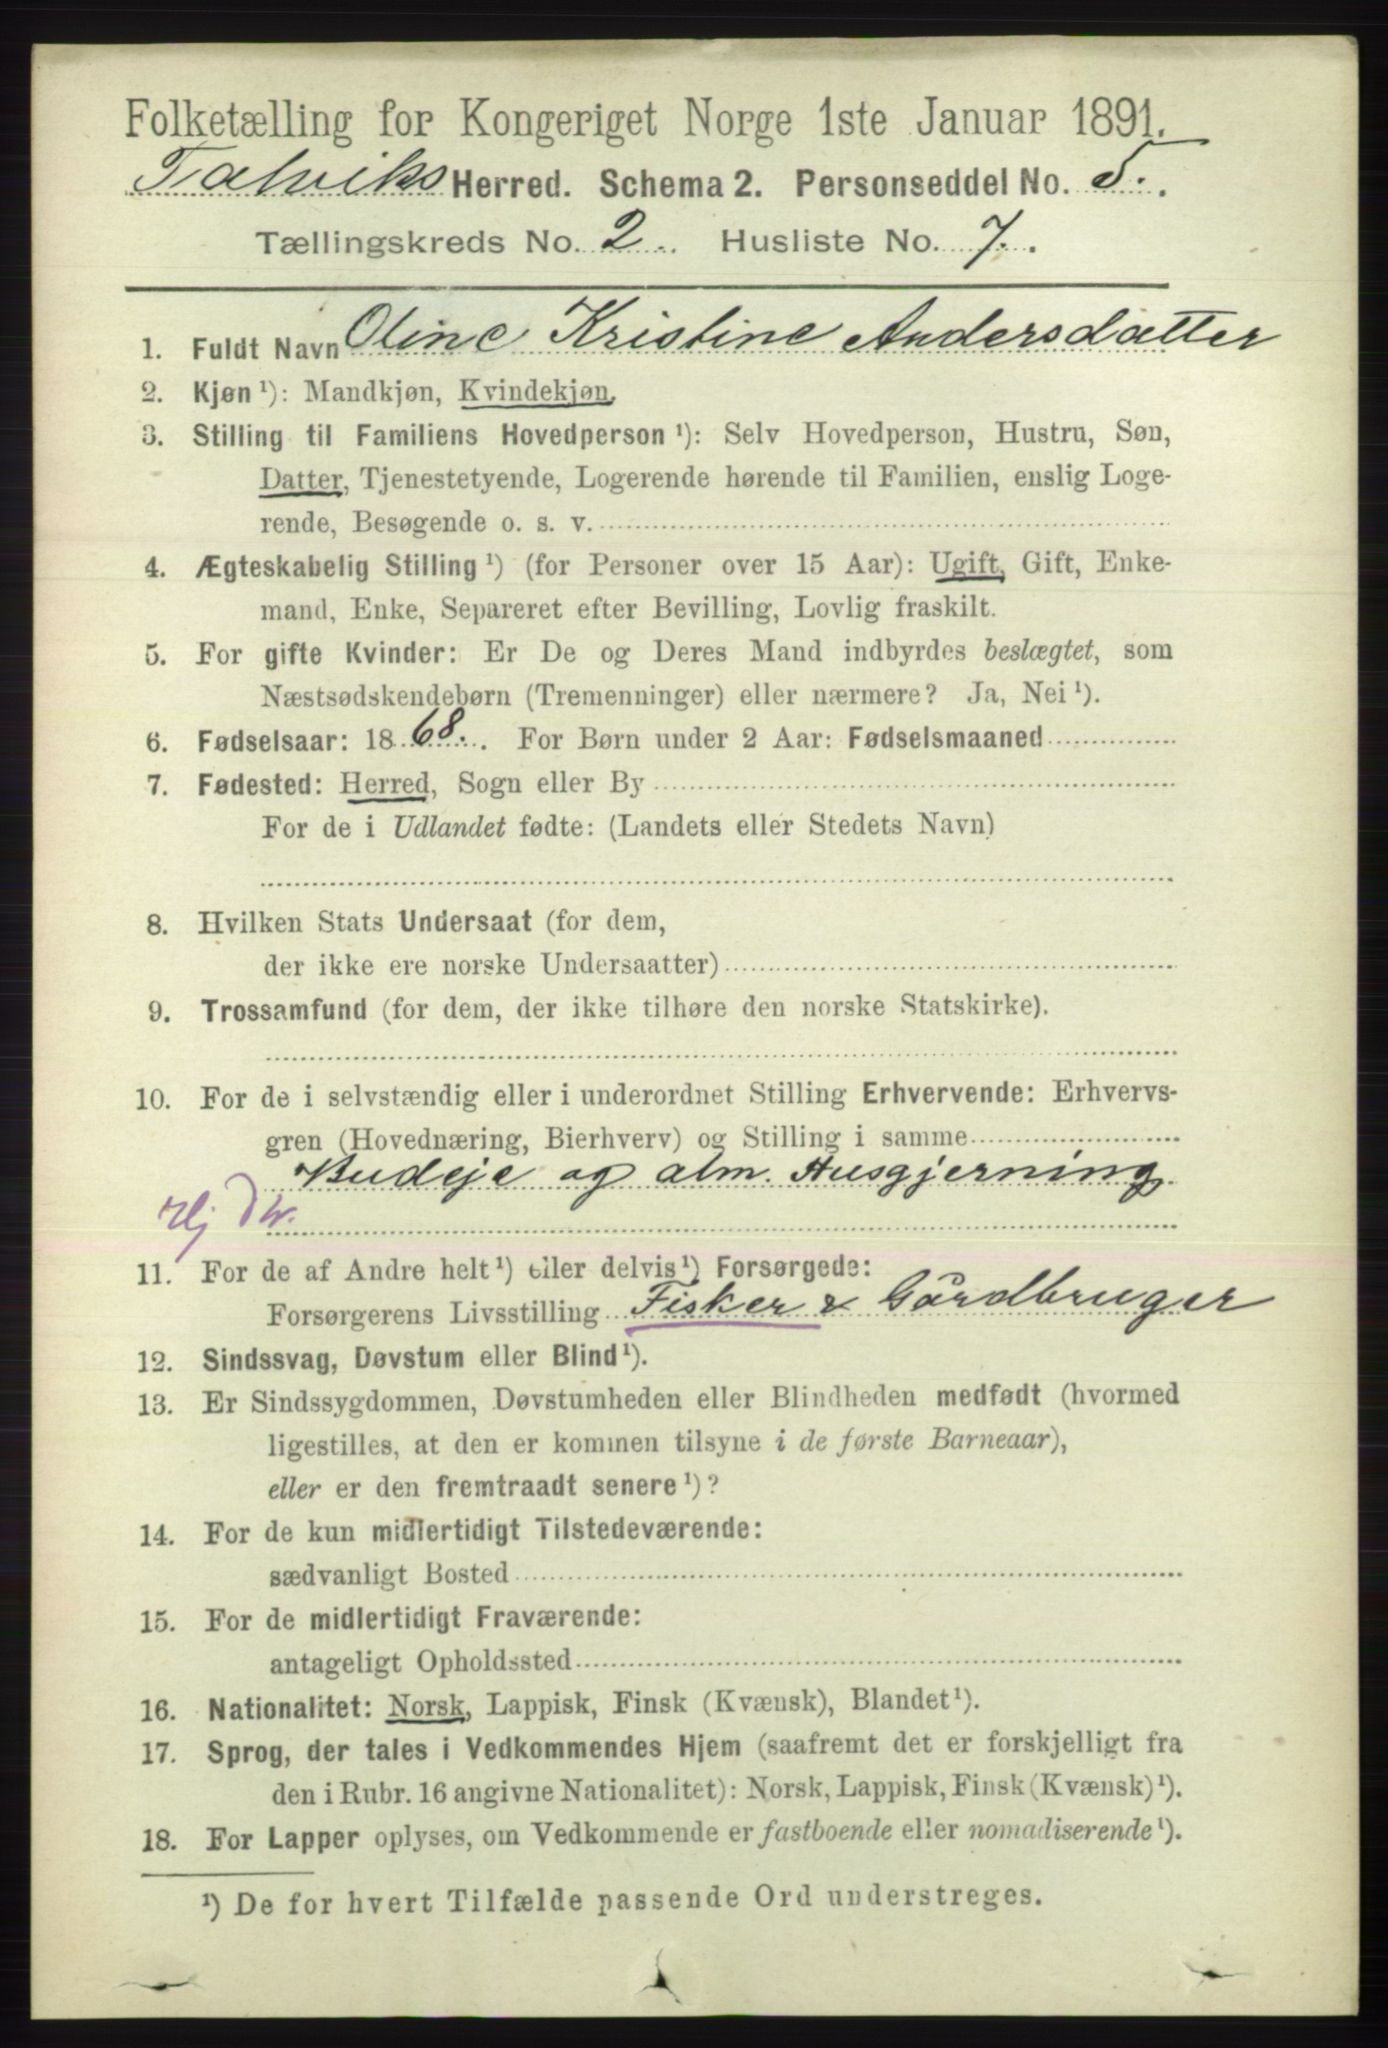 Folketælling for Kongeriget Norge 1ste Januar 1891.
Talviks Herred. Schema 2. Personseddel No. 5.
Tællingskreds No. 2. Husliste No. 7.
1. Fuldt Navn Oline Kristine Andersdatter
2. Kjøn¹): Mandkjøn, Kvindekjøn.
3. Stilling til Familiens Hovedperson¹): Selv Hovedperson, Hustru, Søn,
Datter, Tjenestetyende, Logerende hørende til Familien, enslig Loge-
rende, Besøgende o. s. v.
4. Ægteskabelig Stilling¹) (for Personer over 15 Aar): Ugift, Gift, Enke-
mand, Enke, Separeret efter Bevilling, Lovlig fraskilt.
5. For gifte Kvinder: Er De og Deres Mand indbyrdes beslægtet, som
Næstsødskendebørn (Tremenninger) eller nærmere? Ja, Nei¹).
6. Fødselsaar: 1868. For Børn under 2 Aar: Fødselsmaaned
7. Fødested: Herred, Sogn eller By
For de i Udlandet fødte: (Landets eller Stedets Navn)
8. Hvilken Stats Undersaat (for dem,
der ikke ere norske Undersaatter)
9. Trossamfund (for dem, der ikke tilhøre den norske Statskirke).
10. For de i selvstændig eller i underordnet Stilling Erhvervende: Erhvervs-
gren (Hovednæring, Bierhverv) og Stilling i samme
Budeje og alm. Husgjerning
11. For de af Andre helt¹) eller delvis¹) Forsørgede:
Forsørgerens Livsstilling Fisker & Gårdbruger
12. Sindssvag, Døvstum eller Blind¹).
13. Er Sindssygdommen, Døvstumheden eller Blindheden medfødt (hvormed
ligestilles, at den er kommen tilsyne i de første Barneaar),
eller er den fremtraadt senere¹)?
14. For de kun midlertidigt Tilstedeværende:
sædvanligt Bosted
15. For de midlertidigt Fraværende:
antageligt Opholdssted
16. Nationalitet: Norsk, Lappisk, Finsk (Kvænsk), Blandet¹).
17. Sprog, der tales i Vedkommendes Hjem (saafremt det er forskjelligt fra
den i Rubr. 16 angivne Nationalitet): Norsk, Lappisk, Finsk (Kvænsk)¹).
18. For Lapper oplyses, om Vedkommende er fastboende eller nomadiserende¹).
¹) De for hvert Tilfælde passende Ord understreges.